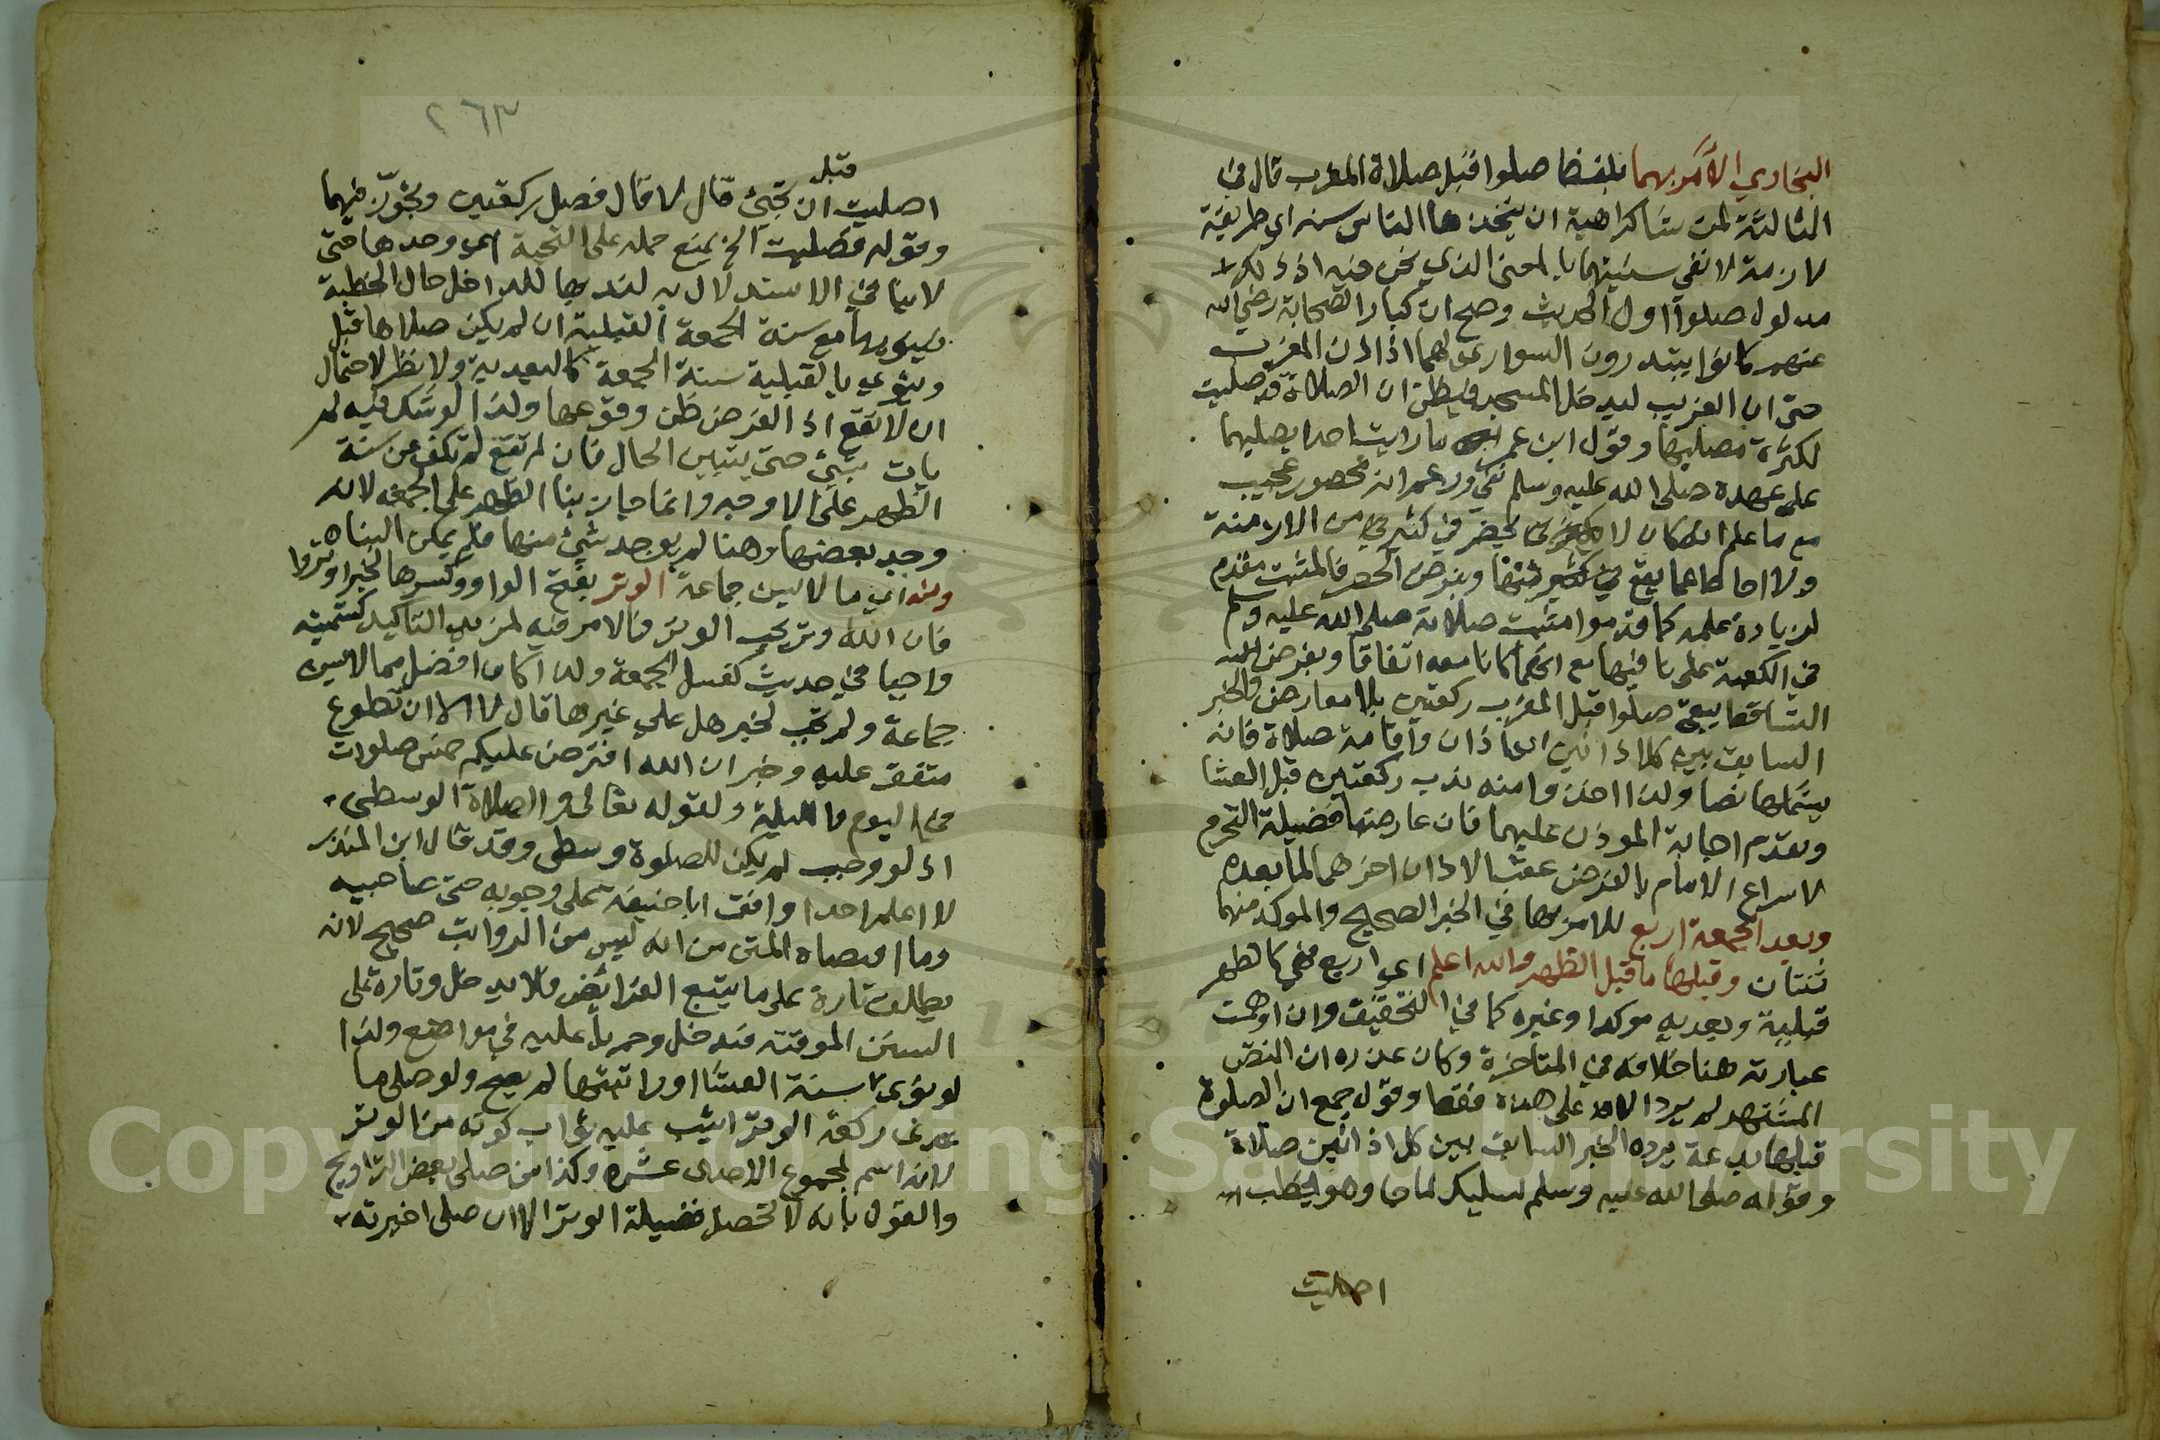 البخاري الأمر بهما بلفظ صلوا قبل صلاة المغرب قال في
الثالثة لمن شاكراهية ان يتخذها الناس سنة اي طريقة
لازمة لا نفي سنيتهما بالمعنى الذي نحن فيه اذ ذلك
مدلول صلوا اول الحديث وصح ان كبار الصحابة رضي الله
عنهم كانوا يبتدرون السواري لهما اذا اذن المغرب
حتى ان الغريب ليدخل المسجد فيظن ان الصلاة قد صليت
لكثرة مصليهما وقول ابن عمر ما رايت احدا يصليهما
على عهده صلى الله عليه وسلم نفي غير محصور عجيب
مع ما علم لا يحضر في كثير من الازمنة
ولا احاطة بما يقع وبفرض الحصر فالمثبت مقدم
لزيادة علمه كما قدموا مثبت صلاته صلى الله عليه وسلم
في الكعبة على نافيها مع انهما كانا معه اتفاقا وبفرض
التساقط يبقى صلوا قبل المغرب ركعتين بلا معارض والخبر
السابق بين كل اذانين اي اذان واقامة صلاة فانه
يشملها نصا ولذا اخذوا منه ندب ركعتين قبل العشا
ويقدم اجابة الموذن عليهما فان عارضتها فضيلة التحرم
لاسراع الامام بالفرض عقب الاذان اخرهما لما بعده
وبعد الجمعة اربع للامر بها في الخبر الصحيح والموكد منها
ثنتان وقبلها ما قبل الظهر والله اعلم اي اربع فهي كالظهر
قبلية وبعدية موكدا وغيره كما في التحقيق وان اوهمت
عبارته هنا خلافه في المتاخرة وكان عذره ان النص
المشتهر لم يرد الا على هذه فقط وقول جمع ان الصلوة
قبلها بدعة يرده الخبر السابق بين كل اذانين صلاة
وقوله صلى الله عليه وسلم لسليك لما جا وهو يخطب
اصليت
٢٦٣
قبل
اصليت ان تجئ قال لا قال فصل ركعتين وتجوز فيهما
وقوله فصليت الخ يمنع حمله على التحية اي وحدها حتى
لا ينافي الاستدلال به لندبها للداخل حال الخطبة
فينويها مع سنة الجمعة القبلية ان لم يكن صلاها قبل
وينوي بالقبلية سنة الجمعة كالبعدية ولا نظر لاحتمال
ان لا تقع اذ الفرض ظن وقوعها ولذا لو شك فيه لم
يات بشئ حتى يتبين الحال فان لم تقع لم تكف عن سنة
الظهر على الاوجه وانما جاز بنا الظهر على الجمعة لانه
وجد بعضها وهنا لم يوجد شئ منها فلم يمكن البناه
ومنه اي ما لا يسن جماعة الوتر بفتح الواو وكسرها لخبر اوتروا
فان الله وتر يحب الوتر فالامر فيه لمزيد التاكيد كتسميته
واجبا في حديث كغسل الجمعة ولذا كان افضل مما لا يسن
جماعة ولم تجب لخبر هل علي غيرها قال لا الا ان تطوع
متفق عليه وخبر ان الله افترض عليكم خمس صلوات
في اليوم والليلة ولقوله تعالى والصلاة الوسطى
اذ لو وجب لم يكن للصلوة وسطى وقد قال ابن المنذر
لا اعلم احدا وافق ابا حنيفة على وجوبه حتى صاحبيه
وما اقتضاه المتن من انه ليس من الرواتب صحيح لانه
يطلق تارة على ما يتبع الفرائض فلا يدخل وتارة على
السنن الموقتة فيدخل وجريا عليه في مواضع ولذا
لو نوى سنة العشا او راتبتها لم يصح ولو صلى ما
عدى ركعة الوتر اثيب عليه ثواب كونه من الوتر
لانه اسم لمجموع الاحدى عشره وكذا من صلى بعض التراويح
والقول بانه لا تحصل فضيلة الوتر الا ان صلى اخيرته
Copyright © King Saud University